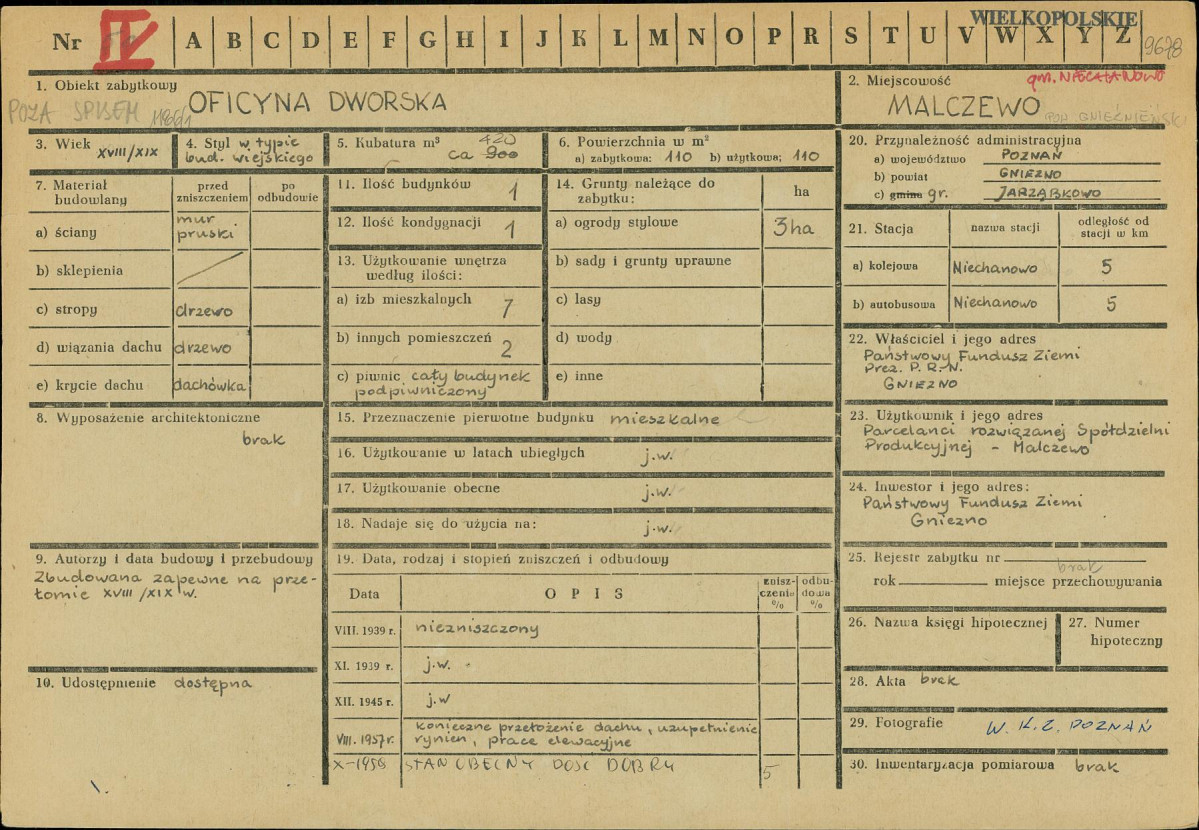 WIELKOPOLSKIE
Nr IV A B C D E F G H I J K L M N O P R S T U V W X Y Z 9678
1. Obiekt zabytkowy
POZA SPISEM OFICYNA DWORSKA
2. Miejscowość
gm. NIECHANOWO
MALCZEWO POW. GNIEŹNIEŃSKI
3. Wiek XVIII/XIX
4. Styl w typie
bud. wiejskiego
5. Kubatura m³ 420
ca 900
6. Powierzchnia w m²
a) zabytkowa: 110 b) użytkowa; 110
7. Materiał
budowlany
przed
zniszczeniem
po
odbudowie
a) ściany mur
pruski
b) sklepienia
c) stropy drzewo
d) wiązania dachu drzewo
e) krycie dachu dachówka
8. Wyposażenie architektoniczne
brak
9. Autorzy i data budowy i przebudowy
Zbudowana zapewne na prze-
łomie XVIII/XIX w.
10. Udostępnienie dostępna
11. Ilość budynków 1
12. Ilość kondygnacji 1
13. Użytkowanie wnętrza
według ilości:
a) izb mieszkalnych 7
b) innych pomieszczeń 2
c) piwnic cały budynek
podpiwniczony
14. Grunty należące do
zabytku:
ha
a) ogrody stylowe 3ha
b) sady i grunty uprawne
c) lasy
d) wody
e) inne
15. Przeznaczenie pierwotne budynku mieszkalne
16. Użytkowanie w latach ubiegłych j.w.
17. Użytkowanie obecne j.w.
18. Nadaje się do użycia na: j.w.
19. Data, rodzaj i stopień zniszczeń i odbudowy
Data
OPIS
znisz-
czenia
%
odbu-
dowa
%
VIII. 1939 r. niezniszczony
XI. 1939 r. j.w.
XII. 1945 r. j.w
VIII. 1957r. konieczne przełożenie dachu, uzupełnienie
rynien, prace elewacyjne
X-1958 STAN OBECNY DOŚĆ DOBRY 5
20. Przynależność administracyjna
a) województwo POZNAŃ
b) powiat GNIEZNO
c) gmina gr. JARZĄBKOWO
21. Stacja
nazwa stacji
odległość od
stacji w km
a) kolejowa Niechanowo 5
b) autobusowa Niechanowo 5
22. Właściciel i jego adres
Państwowy Fundusz Ziemi
Prez. P. R. N.
GNIEZNO
23. Użytkownik i jego adres
Parcelanci rozwiązanej Spółdzielni
Produkcyjnej - Malczewo
24. Inwestor i jego adres:
Państwowy Fundusz Ziemi
Gniezno
25. Rejestr zabytku nr brak
rok miejsce przechowywania
26. Nazwa księgi hipotecznej
27. Numer
hipoteczny
28. Akta brak
29. Fotografie W. K. Z. POZNAŃ
30. Inwentaryzacja pomiarowa brak